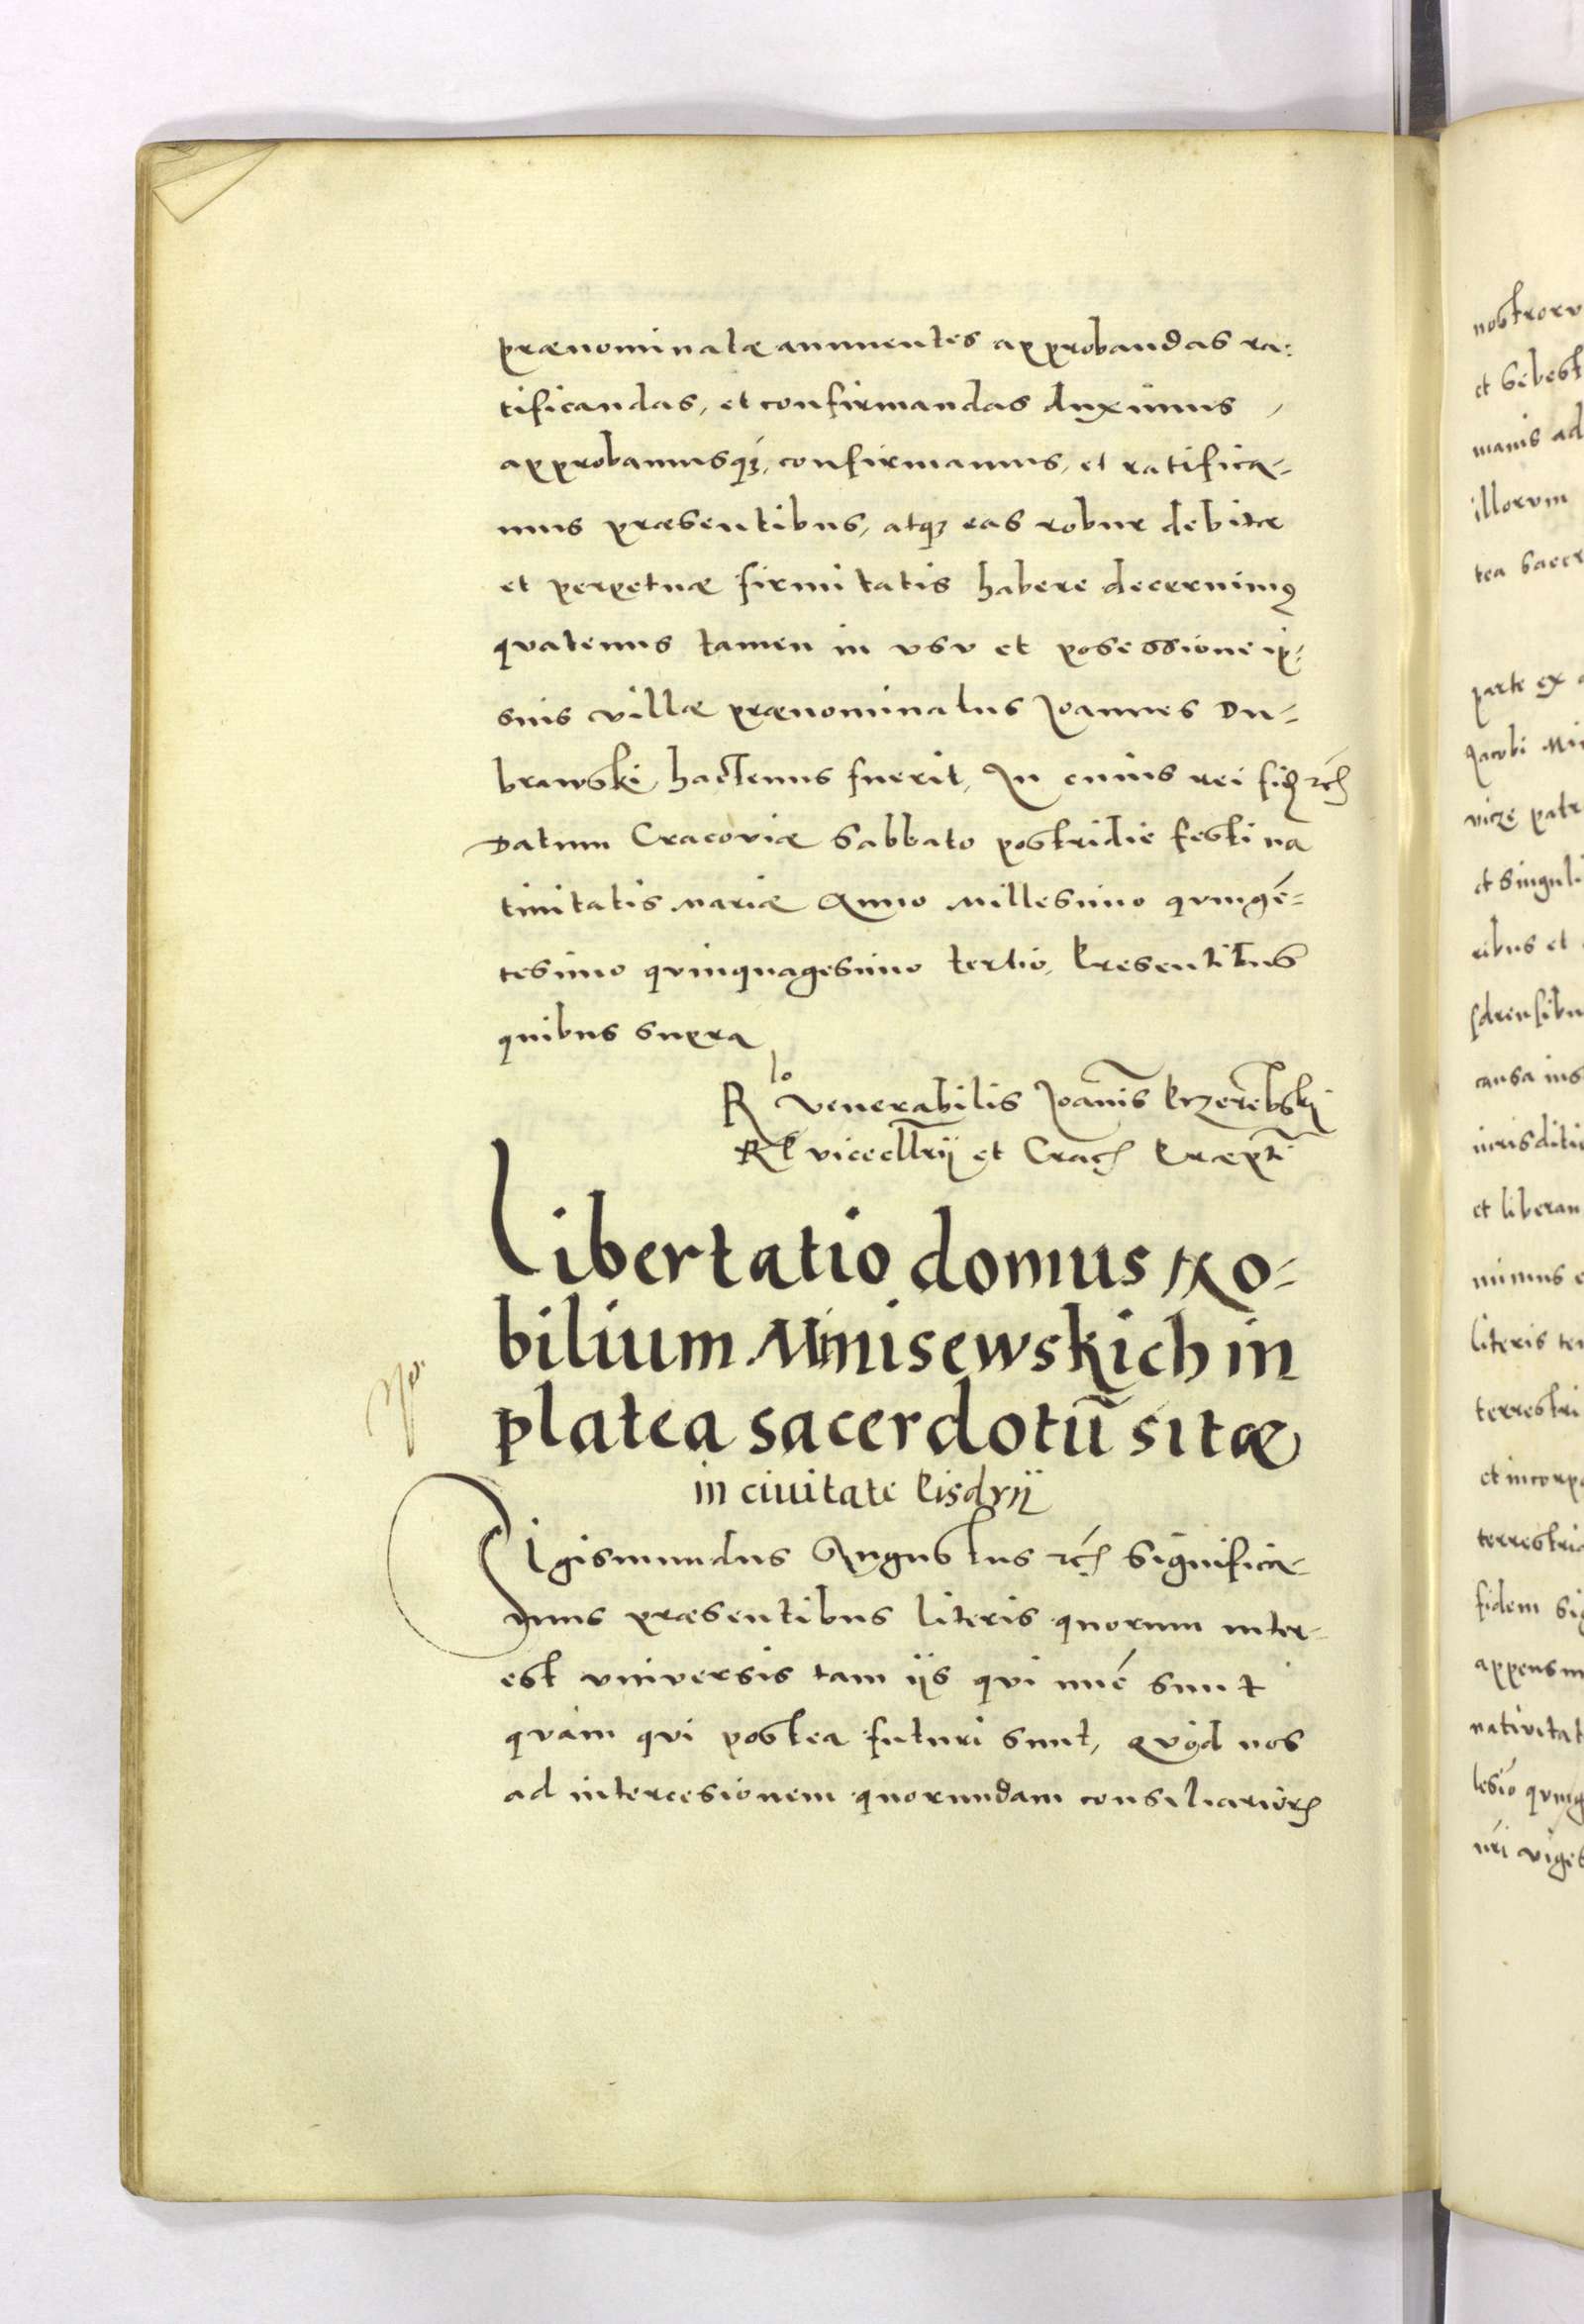 prænominatæ annuentes approbandas ra-
tificandas, et confirmandas duximus,
approbamusq3, confirmamus, et ratifica-
mus præsentibus, atq3 eas robur debitæ
et perpetuæ firmitatis habere decernimꝰ
quatenus tamen in vsv et posessione ip-
sius villæ prænominatus Joannes Du-
brawski hactenus fuerit, In cuius rei fidē etc̄
Datum Cracoviæ Sabbato postridie festi na
tivitatis Mariæ Anno Millesimo qvingē-
tesimo qvinquagesimo tertio, Presentibus
quibus supra
Rlo venerabilis Joānis Przerēbski
R P vicecllrij et Cracꝭ Præptī
Libertatio domus No-
bilium Mnisewskich in
platea sacerdotū sitæ
in ciuitate Pisdrÿ
Sigismundus Augustus etc̄ Significa-
mus præsentibus literis quorum inter-
est vniversis tam ijs qvi nūc sunt
qvàm qvi postea futuri sunt, qvòd nos
ad intercesionem quorundam consiliariorꝝ
nostrorv
et Sebest
manis ad
illorvm
tea Sacer
parte ex
Jacobi
patr
et Singuli
ribus et
causa ins
iurisditio
et liberam
mimus
literis
terrestri
et incorpo
terrestria
fidem Sig
appensum
nativitat
lesio qving
nri viges